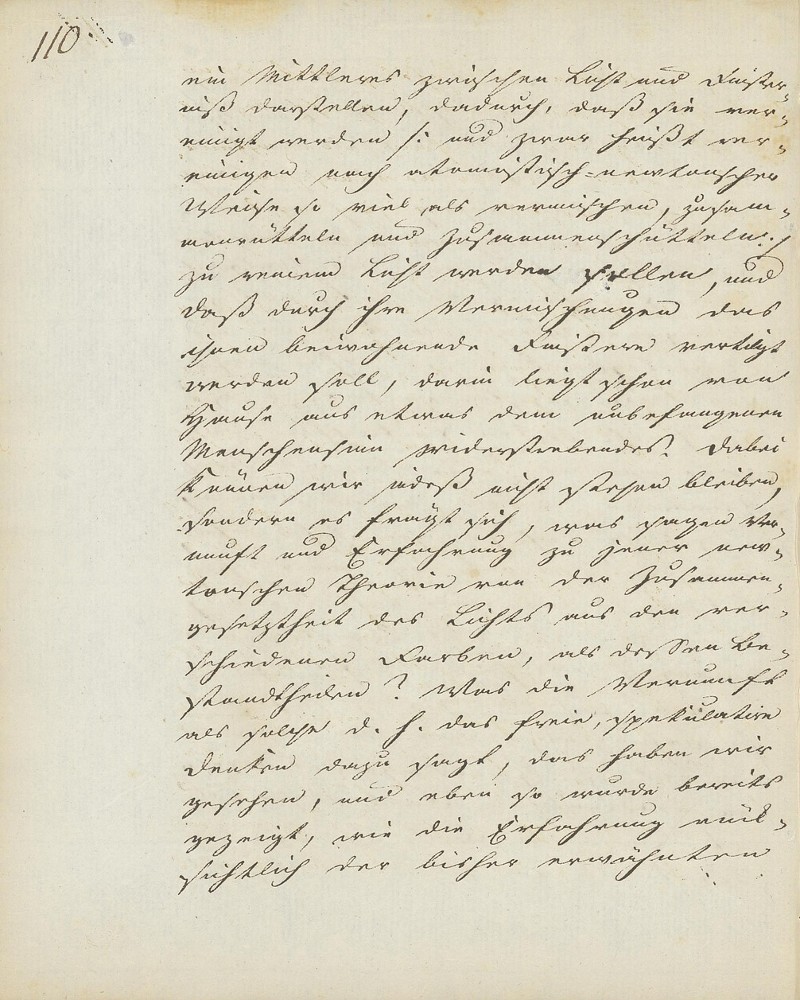 110.
ein Mittleres zwischen Licht und Finster-
niß darstellen, dadurch, daß sie ver-
einigt werden /: und zwar heißt ver-
einigen nach atomistisch-newtonscher
Weise so viel als vermischen, zusam-
menrütteln und zusammenschütteln :/
zu reinem Licht werden sollen, und
daß durch ihre Vermischungen das
ihnen beiwohnende Finstere vertilgt
werden soll, darin liegt schon von
Hause aus etwas dem unbefangenen
Menschensinn widerstrebendes. Dabei
können wir indeß nicht stehen bleiben,
sondern es frägt sich, was sagen Ver-
nunft und Erfahrung zu jener new-
tonschen Theorie von der Zusammen-
gesetztheit des Lichts aus den ver-
schiedenen Farben, als dessen Be-
standtheilen? Was die Vernunft
als solche d. h. das freie, spekulative
Denken dazu sagt, das haben wir
gesehen, und eben so wurde bereits
gezeigt, wie die Erfahrung rück-
sichtlich der bisher erwähnten